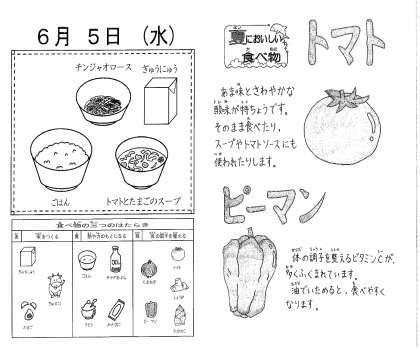 6月 5日 (水)
チンジャオロース
ぎゅうにゅう
ごはん
トマトとたまごのスープ
食べ物の三つのはたらき
ぎゅうにゅう
ごはん
ピーマン
夏においしい
食べ物
トマト
あま味とさわやかな
酸味が特ちょうです。
そのまま食べたり、
スープやトマトソースにも
使われたりします。
ピーマン
体の調子を整えるビタミンCが、
多くふくまれています。
油でいためると、食べやすく
なります。